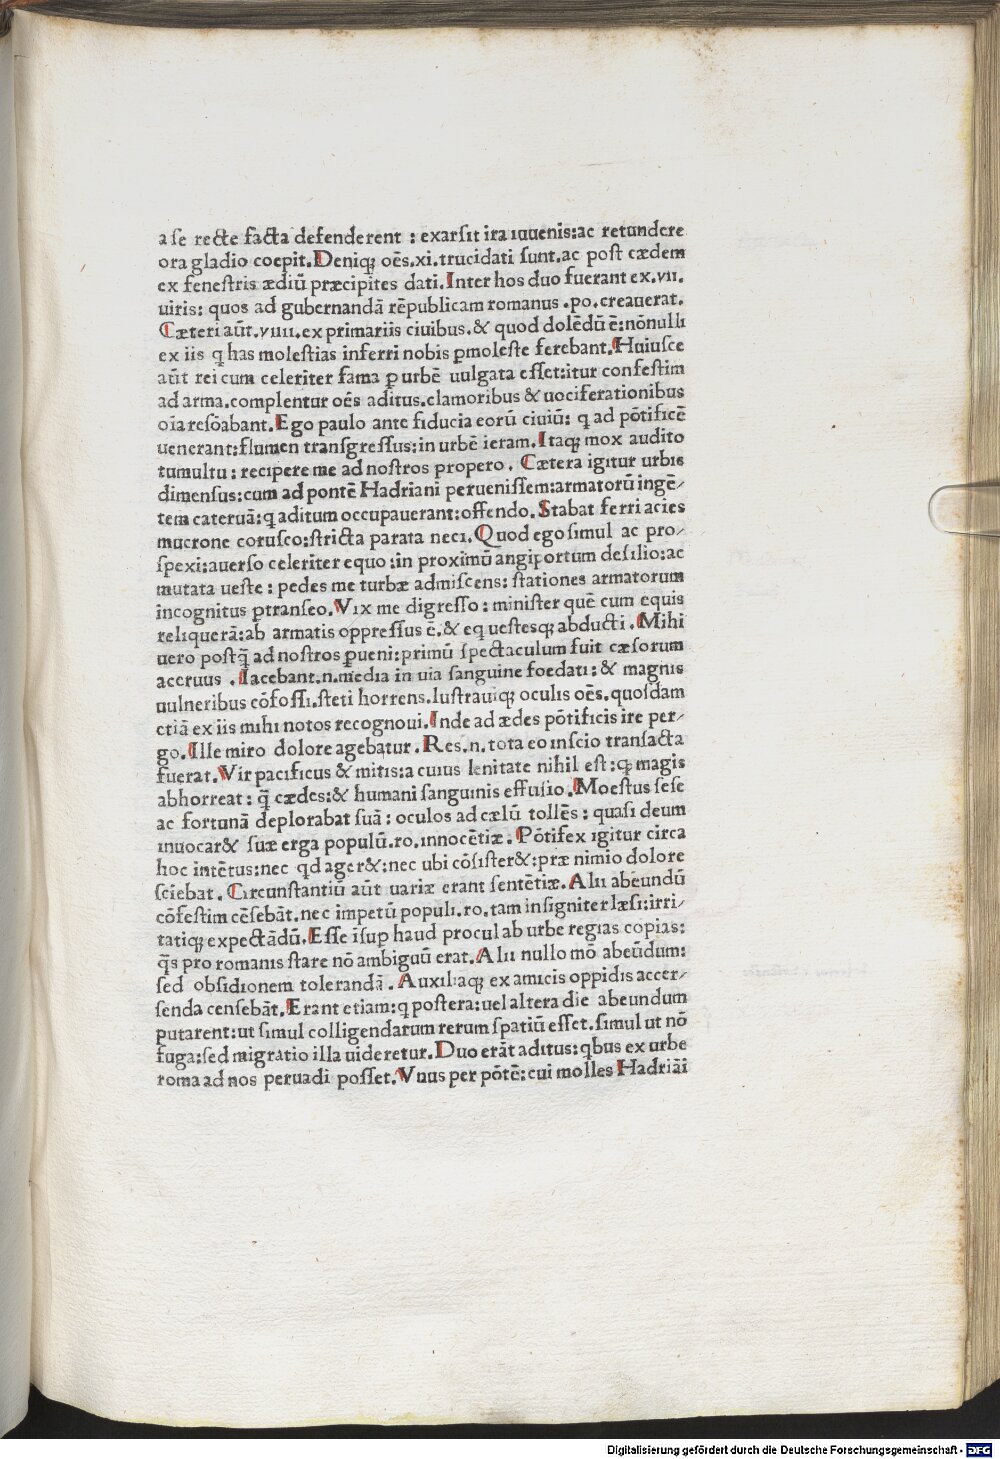 a se recte facta defenderent : exarsit ira iuuenis:ac retundere
ora gladio coepit.Deniqꝫ oẽs.xi.trucidati sunt.ac post cædem
ex fenestris ædiũ præcipites dati.Inter hos duo fuerant ex.vii.
uiris: quos ad gubernandã rẽpublicam romanus .po.creauerat.
Cæteri aũt.viiii.ex primariis ciuibus.& quod dolẽdũ ẽ:nõnulli
ex iis q has molestias inferri nobis ꝑmoleste ferebant.Huiusce
aũt rei cum celeriter fama ꝑ urbẽ uulgata esset:itur confestim
ad arma.complentur oẽs aditus.clamoribus & uociferationibus
oĩa resõabant.Ego paulo ante fiducia eorũ ciuiũ: q ad põtificẽ
uenerant:flumen transgressus:in urbẽ ieram.Itaqꝫ mox audito
tumultu : recipere me ad nostros propero . Cætera igitur urbis
dimensus:cum ad pontẽ Hadriani peruenissem:armatorũ ingẽ/
tem cateruã:q aditum occupauerant:offendo.Stabat ferri acies
mucrone corusco:stricta parata neci.Quod ego simul ac pro/
spexi:auerso celeriter equo:in proximũ angiportum desilio:ac
mutata ueste : pedes me turbæ admiscens: stationes armatorum
incognitus ꝑtranseo.Vix me digresso : minister quẽ cum equis
reliquerã:ab armatis oppressus ẽ.& eq uestesqꝫ abducti . Mihi
uero postq̃ ad nostros ꝑueni:primũ spectaculum fuit cæsorum
aceruus . Iacebant.n.media in uia sanguine foedati:& magnis
uulneribus cõfossi.steti horrens.lustrauiqꝫ oculis oẽs.quosdam
etiã ex iis mihi notos recognoui.Inde ad ædes põtificis ire per/
go.Ille miro dolore agebatur . Res.n.tota eo inscio transacta
fuerat.Vir pacificus & mitis:a cuius lenitate nihil est :qꝫ magis
abhorreat : q̃ cædes:& humani sanguinis effusio . Moestus sese
ac fortunã deplorabat suã : oculos ad cælũ tollẽs : quasi deum
inuocar& suæ erga populũ.ro.innocẽtiæ . Põtifex igitur circa
hoc intẽtus:nec qd ager&:nec ubi cõsister&:præ nimio dolore
sciebat . Circunstantiũ aũt uariæ erant sentẽtiæ.Alii abeundũ
cõfestim cẽsebãt.nec impetũ populi.ro.tam insigniter læsi:irri/
tatiqꝫ expectãdũ.Esse ĩsup haud procul ab urbe regias copias:
q̃s pro romanis stare nõ ambiguũ erat.Alii nullo mõ abeũdum:
sed obsidionem tolerandã . Auxiliaqꝫ ex amicis oppidis accer/
senda censebãt.Erant etiam:q postera:uel altera die abeundum
putarent:ut simul colligendarum rerum spatiũ esset.simul ut nõ
fuga:sed migratio illa uideretur.Duo erãt aditus:qbus ex urbe
roma ad nos peruadi posset.Vnus per põtẽ:cui molles Hadriãi
Digitalisierung gefördert durch die Deutsche Forschungsgemeinschaft - DFG